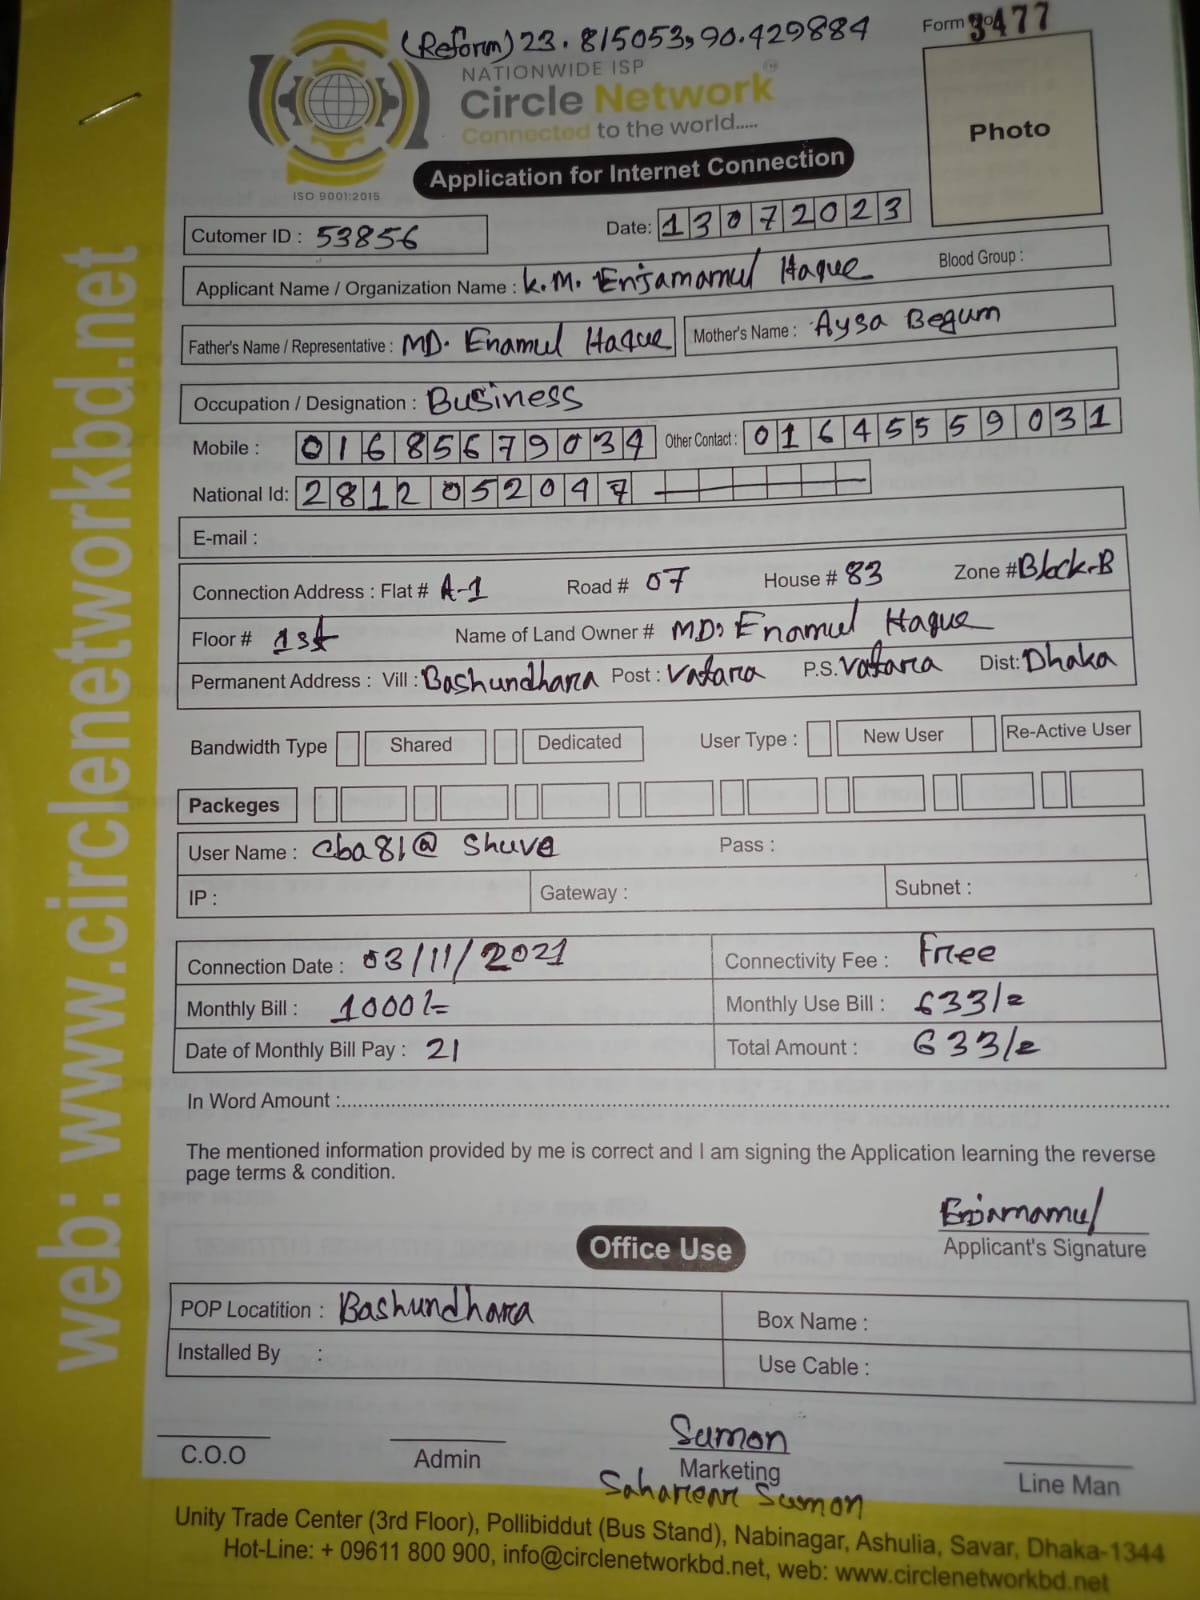 (Reform) 23.815053, 90.429884
Form No 3477
NATIONWIDE ISP
Circle Network
Connected to the world.....
Photo
Application for Internet Connection
ISO 9001:2015
Cutomer ID : 53856
Date: 13072023
Applicant Name / Organization Name : K.M. Enjamamul Haque Blood Group :
Father's Name / Representative : MD. Enamul Haque Mother's Name : Aysa Begum
Occupation / Designation : Business
Mobile : 01685679034 Other Contact : 01645559031
National Id: 2812052047
E-mail :
Connection Address : Flat # A-1 Road # 07 House # 83 Zone # Block-B
Floor # 1st Name of Land Owner # MD. Enamul Haque
Permanent Address : Vill : Bashundhara Post : Vatara P.S. Vatara Dist: Dhaka
Bandwidth Type Shared Dedicated User Type : New User Re-Active User
Packeges
User Name : cba81@shuvo Pass :
IP : Gateway : Subnet :
Connection Date : 03/11/2021 Connectivity Fee : Free
Monthly Bill : 1000/= Monthly Use Bill : 633/=
Date of Monthly Bill Pay : 21 Total Amount : 633/=
In Word Amount :
The mentioned information provided by me is correct and I am signing the Application learning the reverse
page terms & condition.
Enjamamul
Applicant's Signature
Office Use
POP Locatition : Bashundhara Box Name :
Installed By : Use Cable :
Sumon
C.O.O Admin Marketing Line Man
Sumon
Unity Trade Center (3rd Floor), Pollibiddut (Bus Stand), Nabinagar, Ashulia, Savar, Dhaka-1344
Hot-Line: + 09611 800 900, info@circlenetworkbd.net, web: www.circlenetworkbd.net
web: www.circlenetworkbd.net